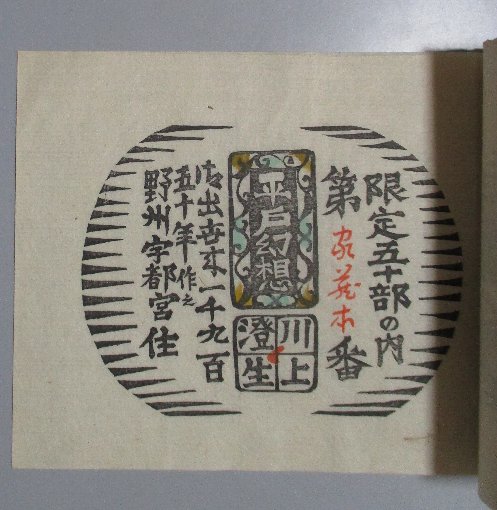 限定五十部の内
第家蔵本番
平戸幻想
川上
澄生
御出世以来一千九百
五十年作之
野州宇都宮住